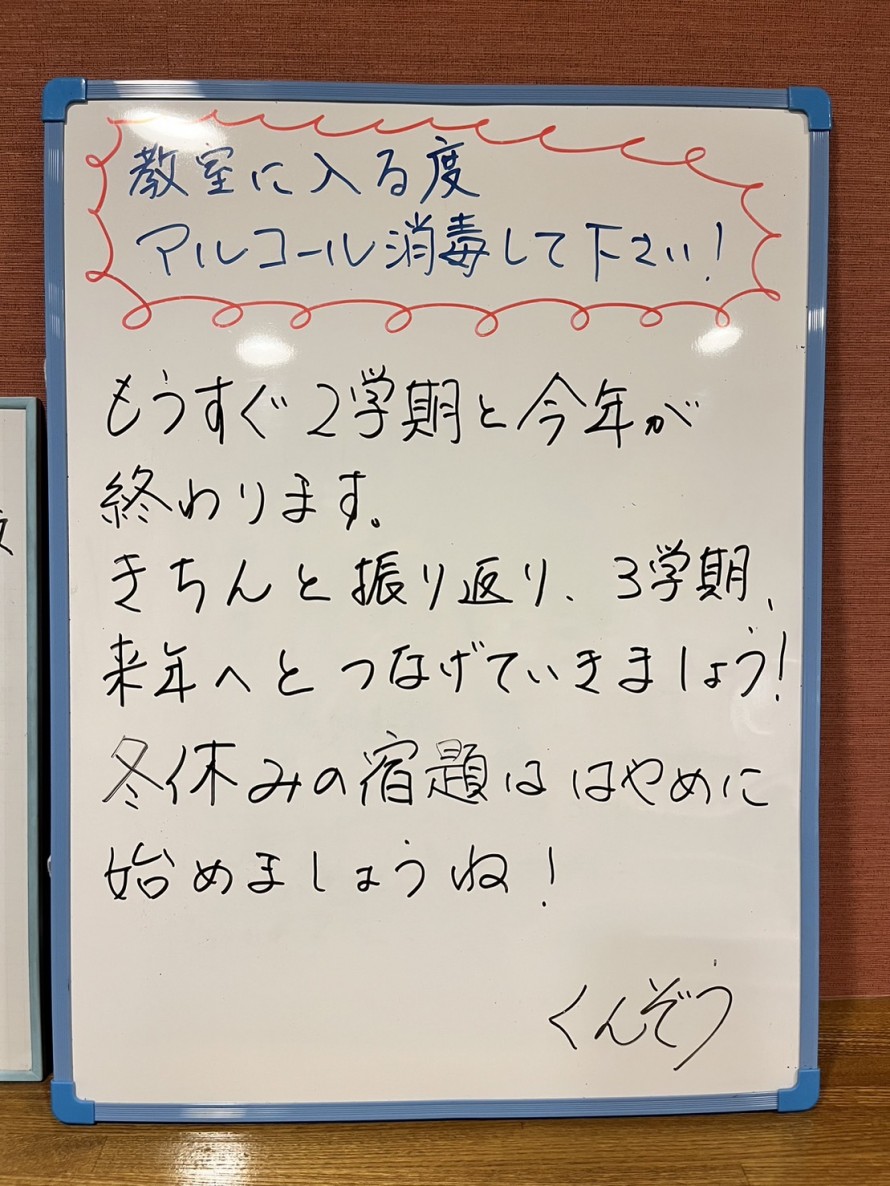 教室に入る度
アルコール消毒して下さい!
もうすぐ2学期と今年が
終わります。
きちんと振り返り、3学期、
来年へとつなげていきましょう!
冬休みの宿題ははやめに
始めましょうね!
くんぞう